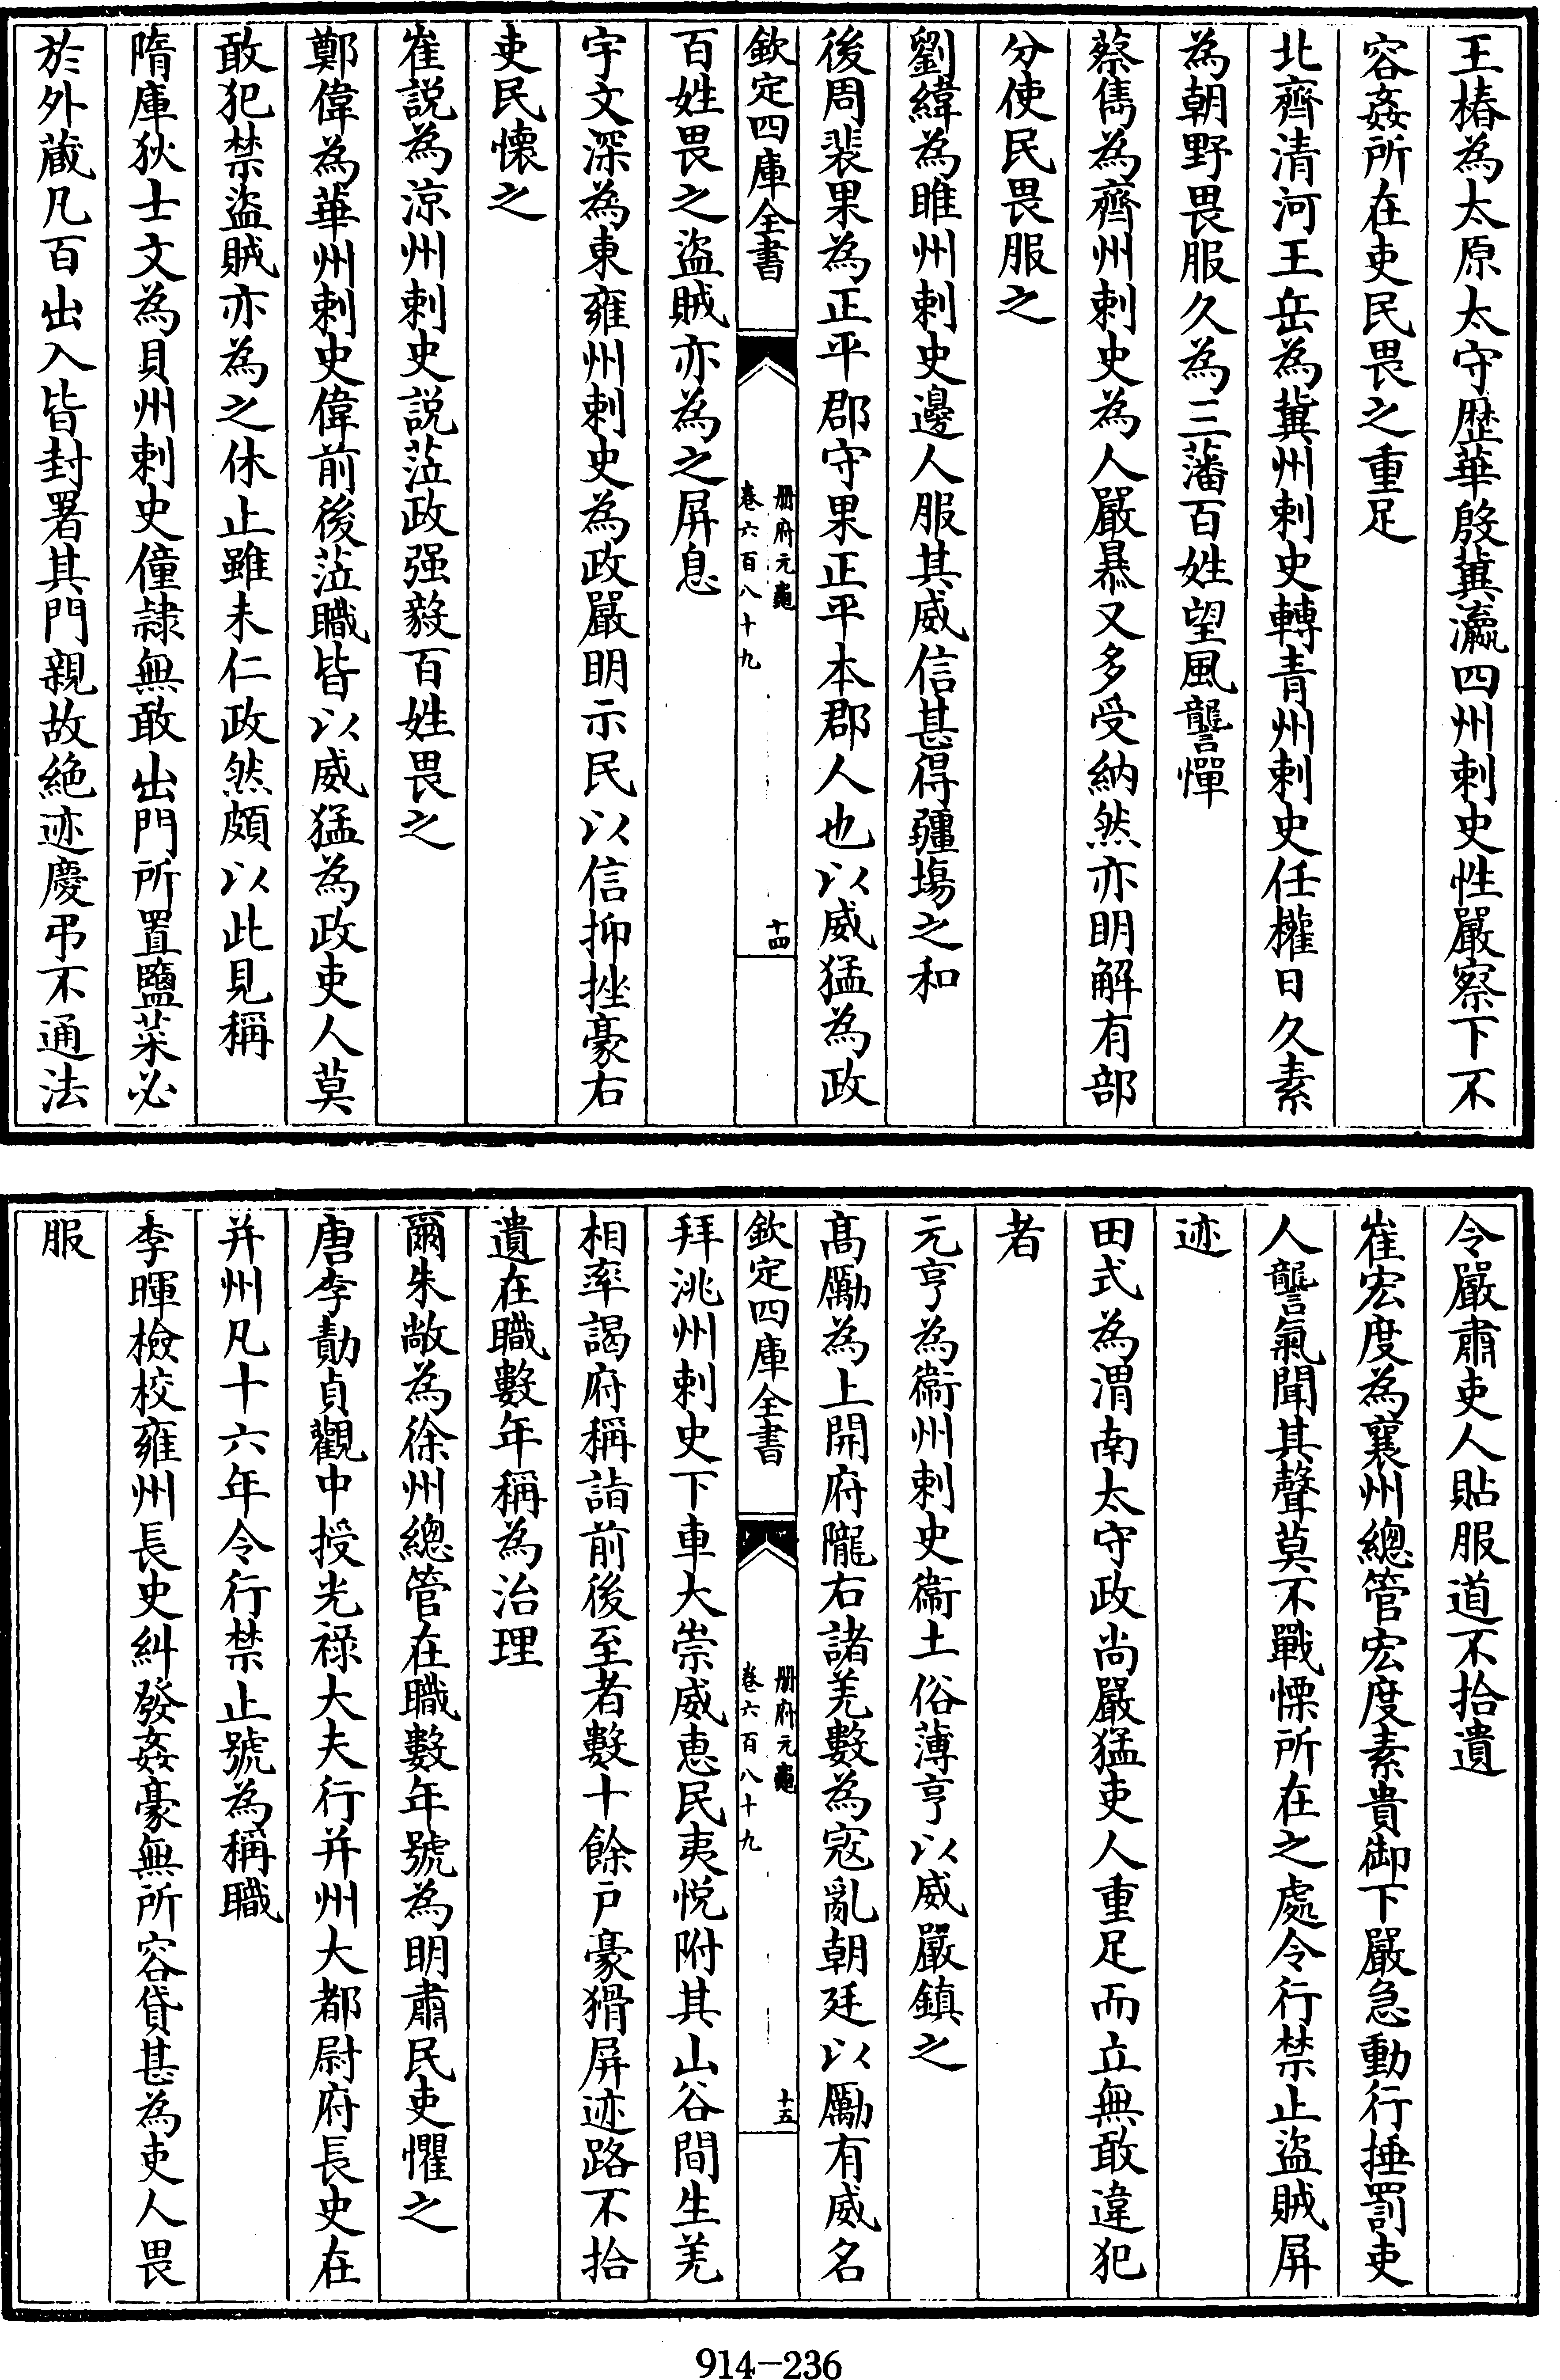 王椿為太原太守歴華殷冀瀛四州刺史性嚴察下不
容姦所在吏民畏之重足
北齊清河王岳為冀州刺史轉青州刺史任權日久素
為朝野畏服久為三藩百姓望風讋憚
蔡儁為齊州刺史為人嚴暴又多受納然亦明解有部
分使民畏服之
劉緯為雎州刺史邊人服其威信甚得疆塲之和
後周裴果為正平郡守果正平本郡人也以威猛為政
欽定四庫全書
册府元龜
卷六百八十九
十四
百姓畏之盜賊亦為之屏息
宇文深為東雍州刺史為政嚴明示民以信抑挫豪右
吏民懷之
崔説為涼州刺史説蒞政强毅百姓畏之
鄭偉為華州刺史偉前後蒞職皆以威猛為政吏人莫
敢犯禁盜賊亦為之休止雖未仁政然頗以此見稱
隋庫狄士文為貝州刺史僮隷無敢出門所置鹽菜必
於外藏凡百出入皆封署其門親故絶迹慶弔不通法
令嚴肅吏人貼服道不拾遺
崔宏度為襄州總管宏度素貴御下嚴急動行捶罰吏
人讋氣聞其聲莫不戰慄所在之處令行禁止盜賊屏
迹
田式為渭南太守政尚嚴猛吏人重足而立無敢違犯
者
元亨為衞州刺史衞土俗薄亨以威嚴鎮之
髙勵為上開府隴右諸羌數為寇亂朝廷以勵有威名
欽定四庫全書
册府元龜
卷六百八十九
十五
拜洮州刺史下車大崇威惠民夷悦附其山谷間生羌
相率謁府稱詣前後至者數十餘户豪猾屏迹路不拾
遺在職數年稱為治理
爾朱敞為徐州總管在職數年號為明肅民吏懼之
唐李勣貞觀中授光祿大夫行并州大都尉府長史在
并州凡十六年令行禁止號為稱職
李暉檢校雍州長史糾發姦豪無所容貸甚為吏人畏
服
914-236